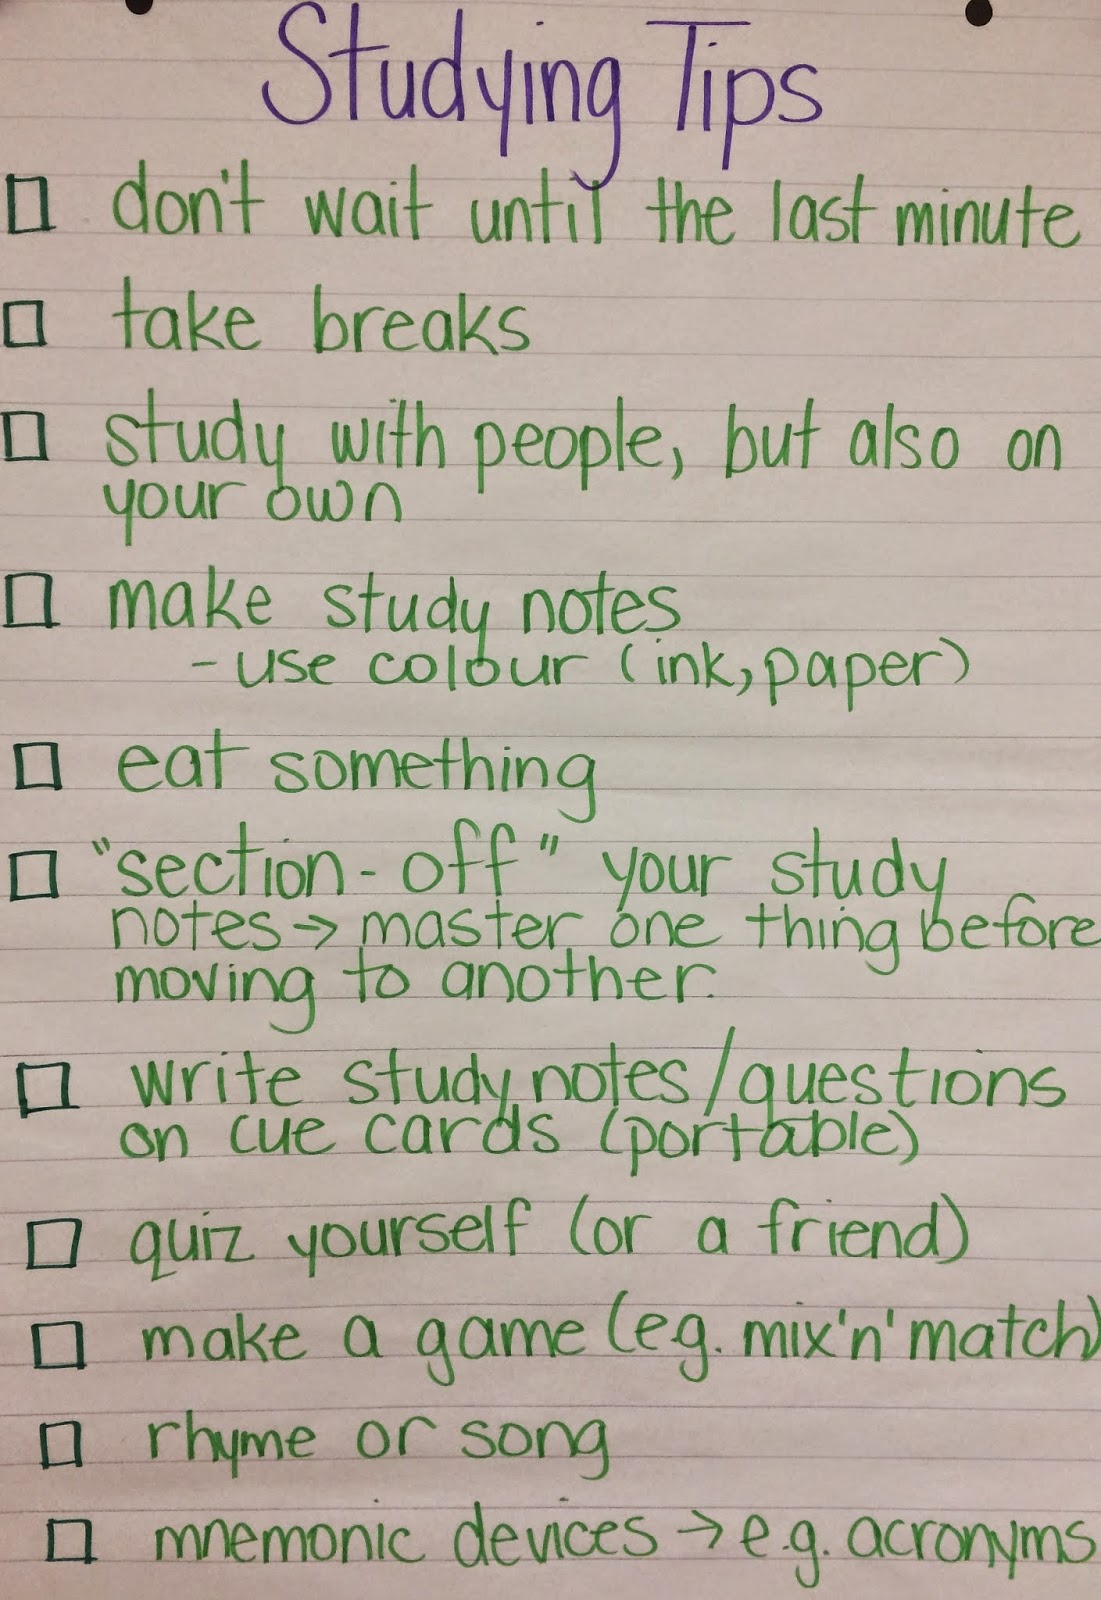 Studying Tips
don't wait until the last minute
take breaks
study with people, but also on
your own
make study notes
- use colour (ink, paper)
eat something
"section-off" your study
notes → master one thing before
moving to another.
write study notes/questions
on cue cards (portable)
quiz yourself (or a friend)
make a game (eg. mix'n'match)
rhyme or song
mnemonic devices → e.g. acronyms